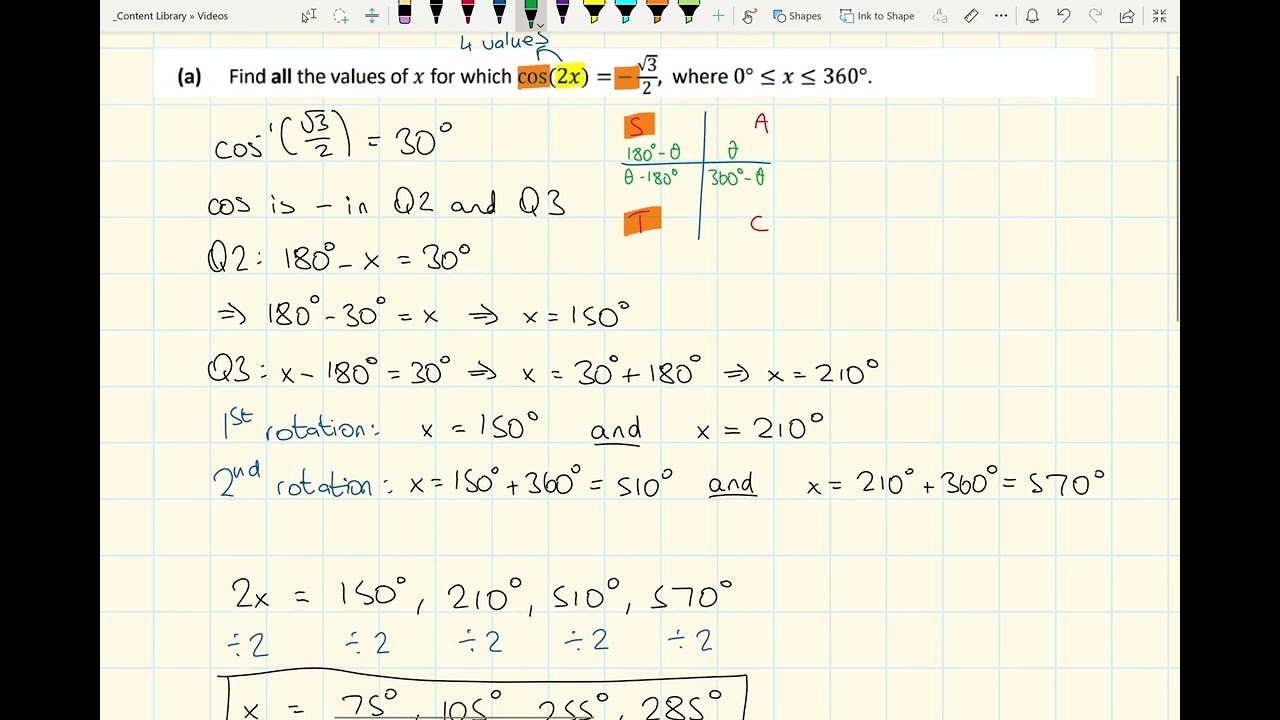 _Content Library » Videos
Shapes
Ink to Shape
4 values
(a) Find all the values of x for which cos(2x) = −√3/2, where 0° ≤ x ≤ 360°.
cos⁻¹(√3/2) = 30°
S A
180°-θ θ
θ-180° 360°-θ
T C
cos is - in Q2 and Q3
Q2: 180° - x = 30°
⇒ 180° - 30° = x ⇒ x = 150°
Q3: x - 180° = 30° ⇒ x = 30° + 180° ⇒ x = 210°
1st rotation: x = 150° and x = 210°
2nd rotation: x = 150° + 360° = 510° and x = 210° + 360° = 570°
2x = 150°, 210°, 510°, 570°
÷2 ÷2 ÷2 ÷2 ÷2
x = 75°, 105°, 255°, 285°